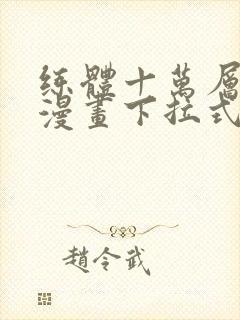 练體十萬層
漫畫下拉式
趙令武